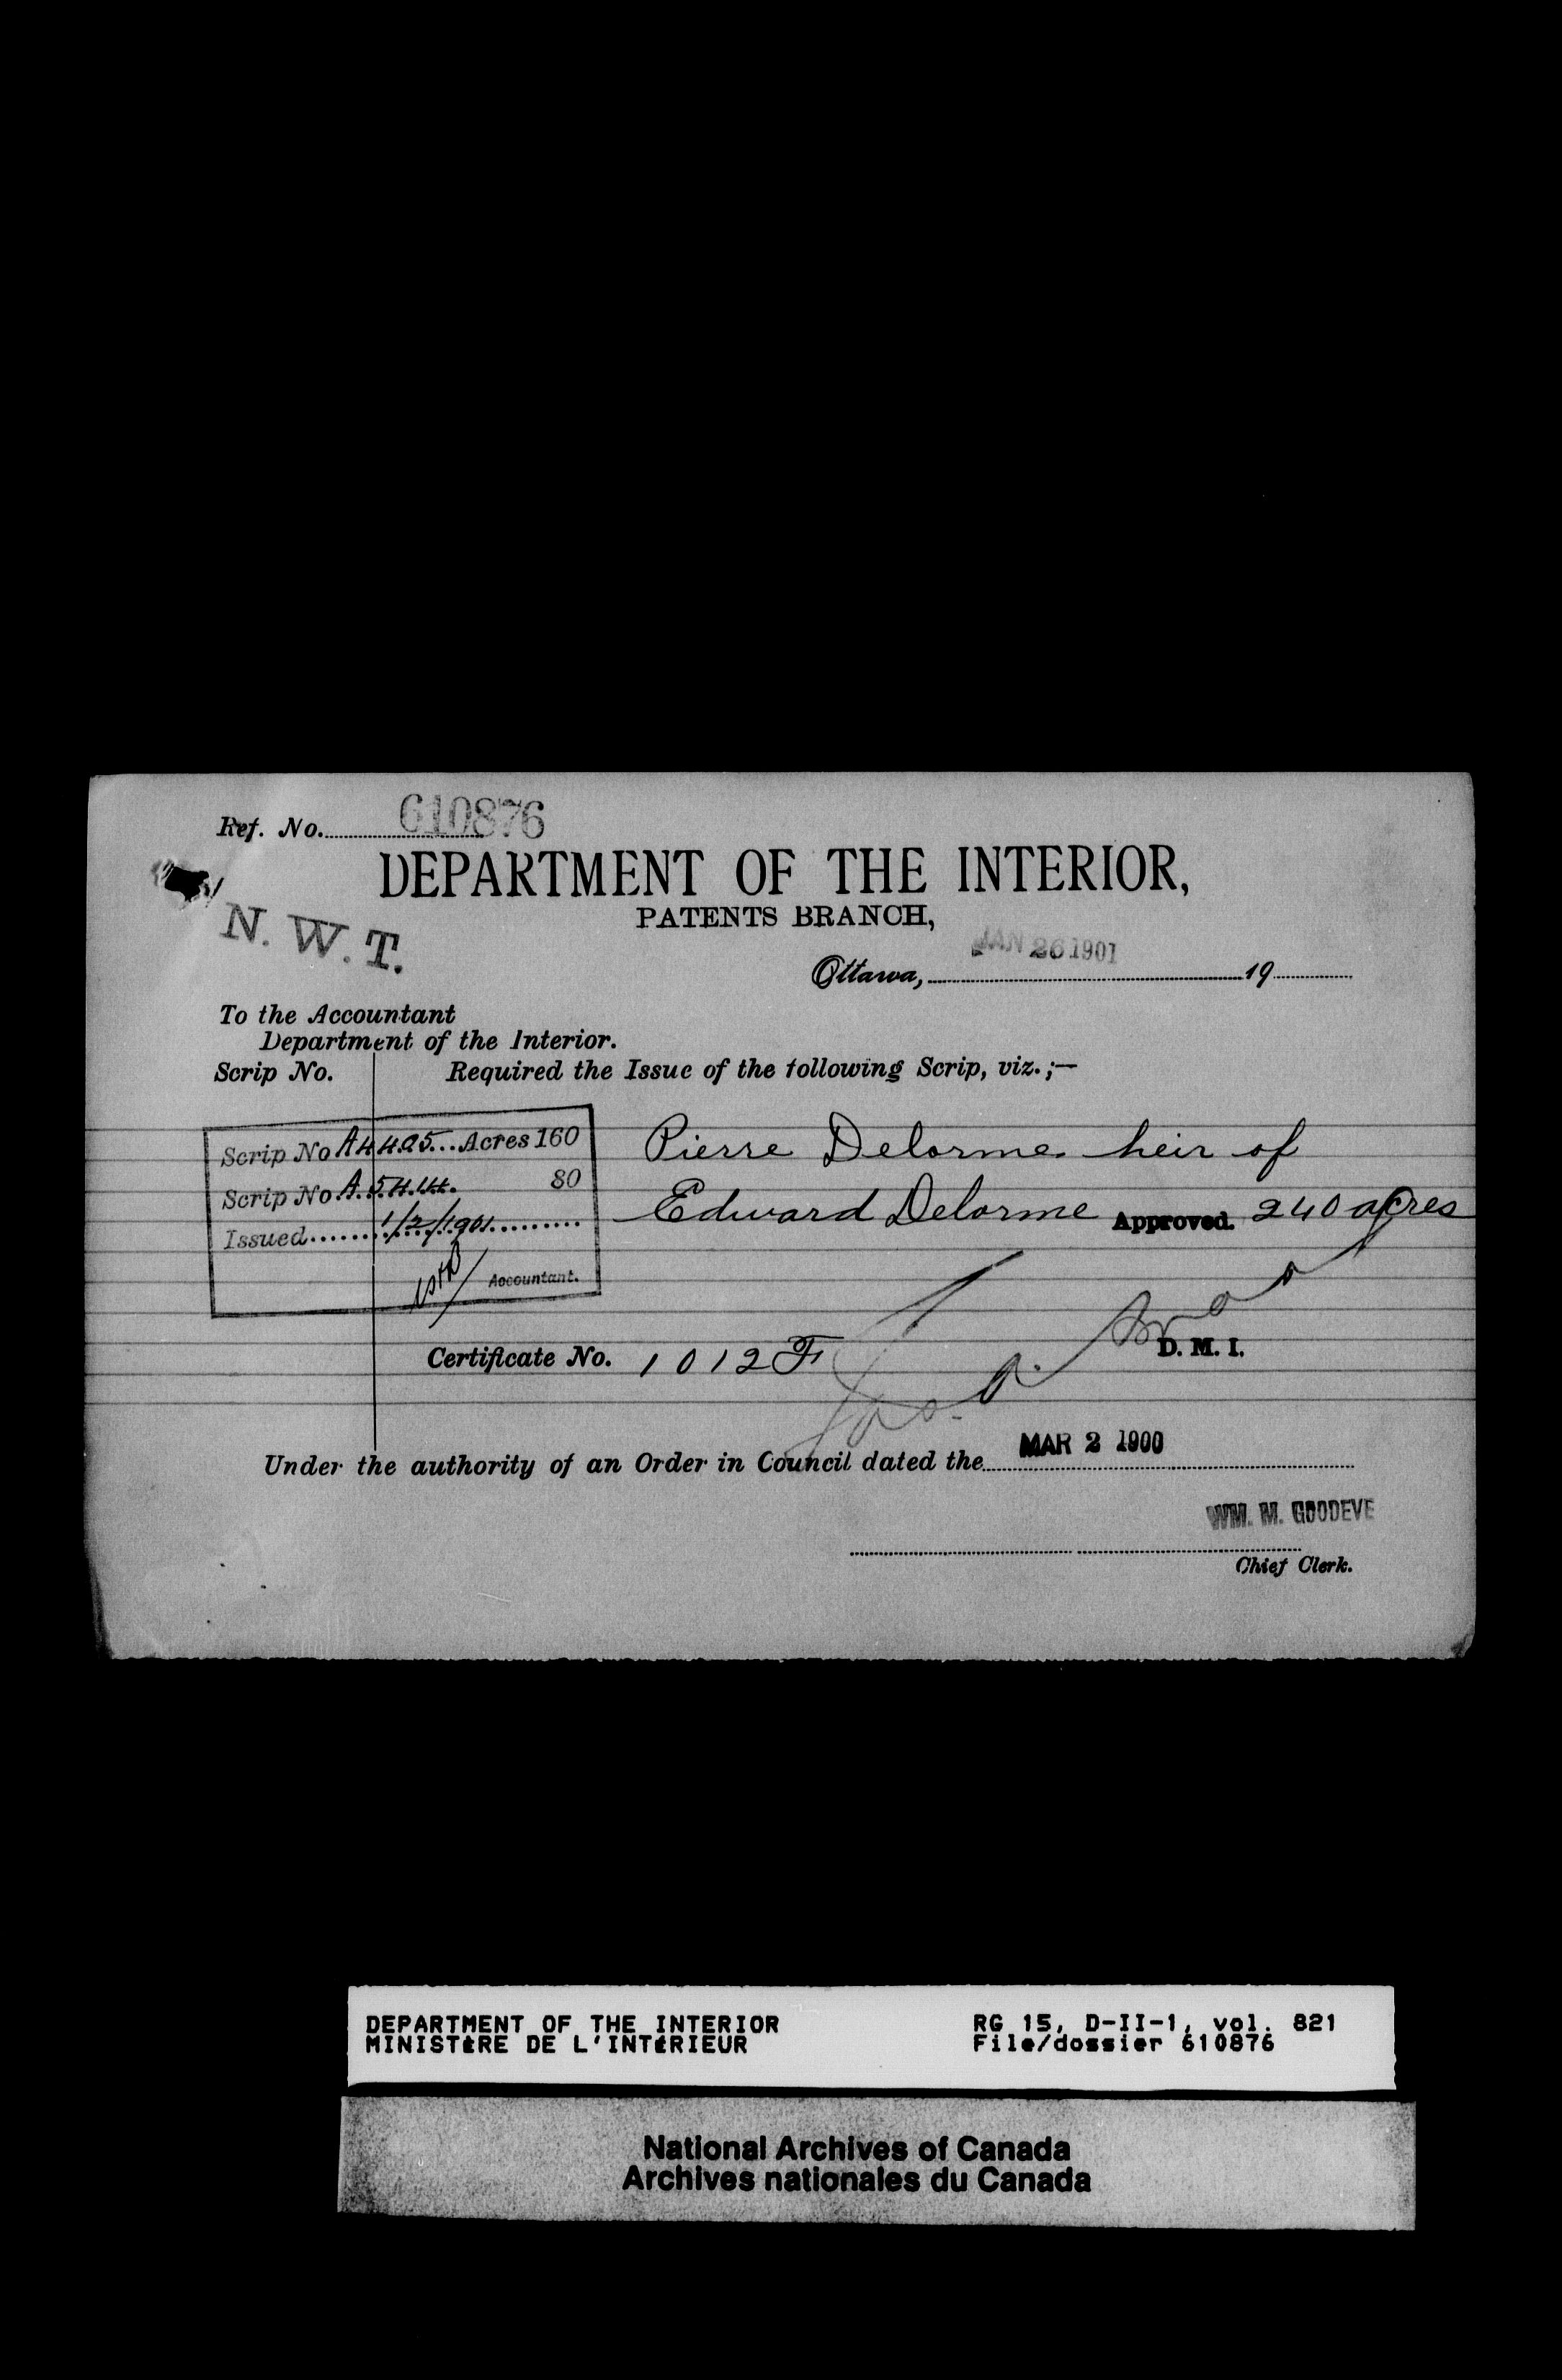 Ref. No. 610876
DEPARTMENT OF THE INTERIOR,
PATENTS BRANCH,
N. W. T.
JAN 26 1901
Ottawa, 19
To the Accountant
Department of the Interior.
Scrip No. Required the Issue of the following Scrip, viz.;—
Scrip No A4495 Acres 160
Scrip No. A. 5444. 80
Issued 1/2/1901
Accountant.
Pierre Delorme heir of
Edward Delorme Approved. 240 acres
D. M. I.
Certificate No. 1012 F
Under the authority of an Order in Council dated the MAR 2 1900
WM. M. GOODEVE
Chief Clerk.
DEPARTMENT OF THE INTERIOR RG 15, D-II-1, vol. 821
MINISTÈRE DE L'INTÉRIEUR File/dossier 610876
National Archives of Canada
Archives nationales du Canada